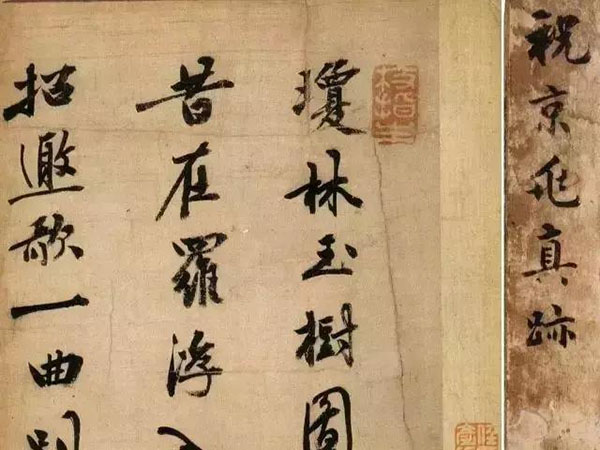 祝京兆真跡
枝指生
瓊林玉樹
昔在羅浮
招邀歌一曲